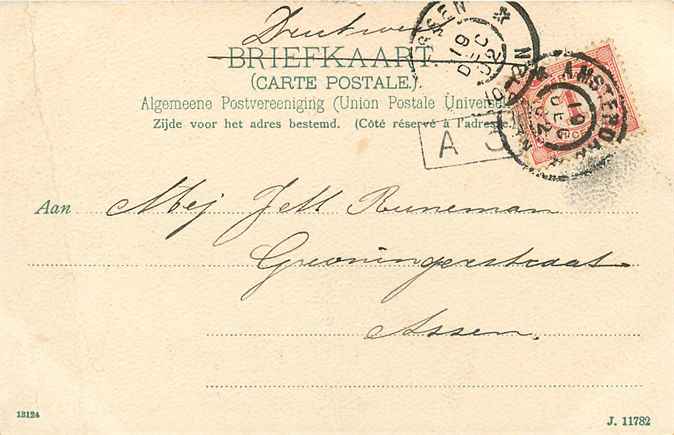 Drukwerk
BRIEFKAART
(CARTE POSTALE.)
Algemeene Postvereeniging (Union Postale Universelle)
Zijde voor het adres bestemd. (Côté réservé à l'adresse.)
ASSEN
19 DEC 02
AMSTERDAM
19 DEC 02
A 5
Aan Mej Jett Runeman
Groningerstraat
Assen.
13124
J. 11782